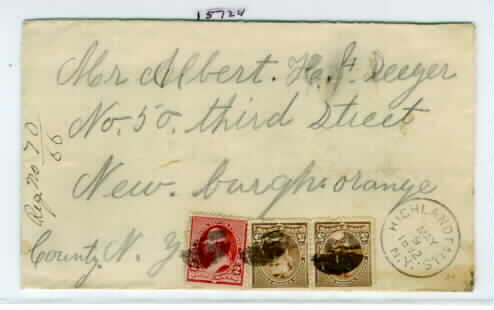 15724
Mr Albert. H.
No. 50. third Street
New. burgh: orange
County. N. Y
Reg no 70
66
HIGHLAND FALLS. N.Y.
MAY
9
1892